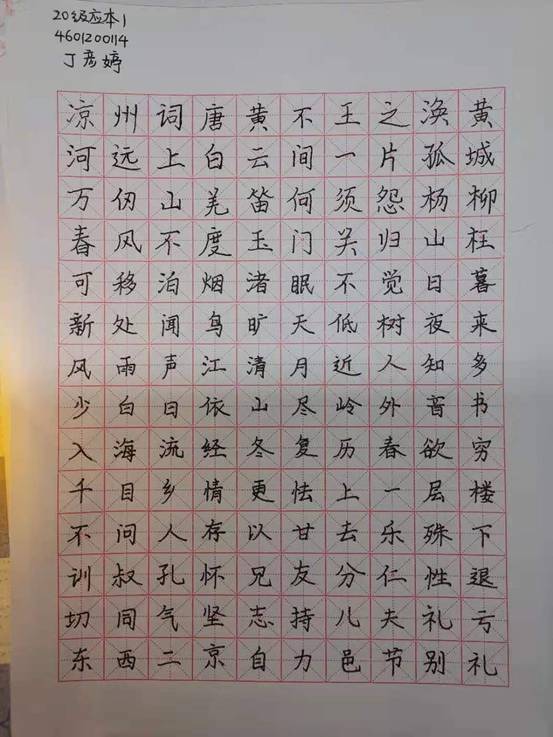 20级应本1
4601200114
丁彦婷
凉州词唐黄不王之涣黄
河远上白云间一片孤城
万仞山羌笛何须怨杨柳
春风不度玉门关归山枉
可移泊烟渚眠不觉日暮
新处闻鸟旷天低树夜来
风雨声江清月近人知多
少白日依山尽岭外音书
入海流经冬复历春欲穷
千目乡情更怯上一层楼
不问人存以甘去乐殊下
训叔孔怀兄友分仁性退
切同气坚志持儿夫礼亏
东西二京自力邑节别礼